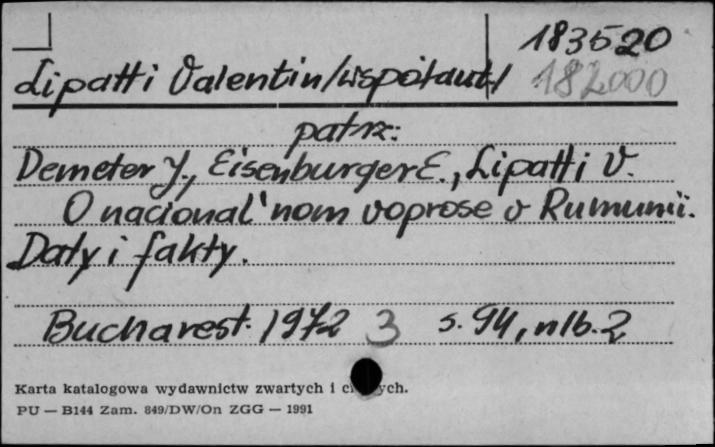 183520
Lipatti Valentin /współaut./ 182000
patrz:
Demeter J., Eisenburger E., Lipatti V.
O nacional'nom voprose v Rumunii.
Daty i fakty.
Bucharest. 1972 3 s. 94, nlb. 2
Karta katalogowa wydawnictw zwartych i ych.
PU — B144 Zam. 849/DW/On ZGG — 1991